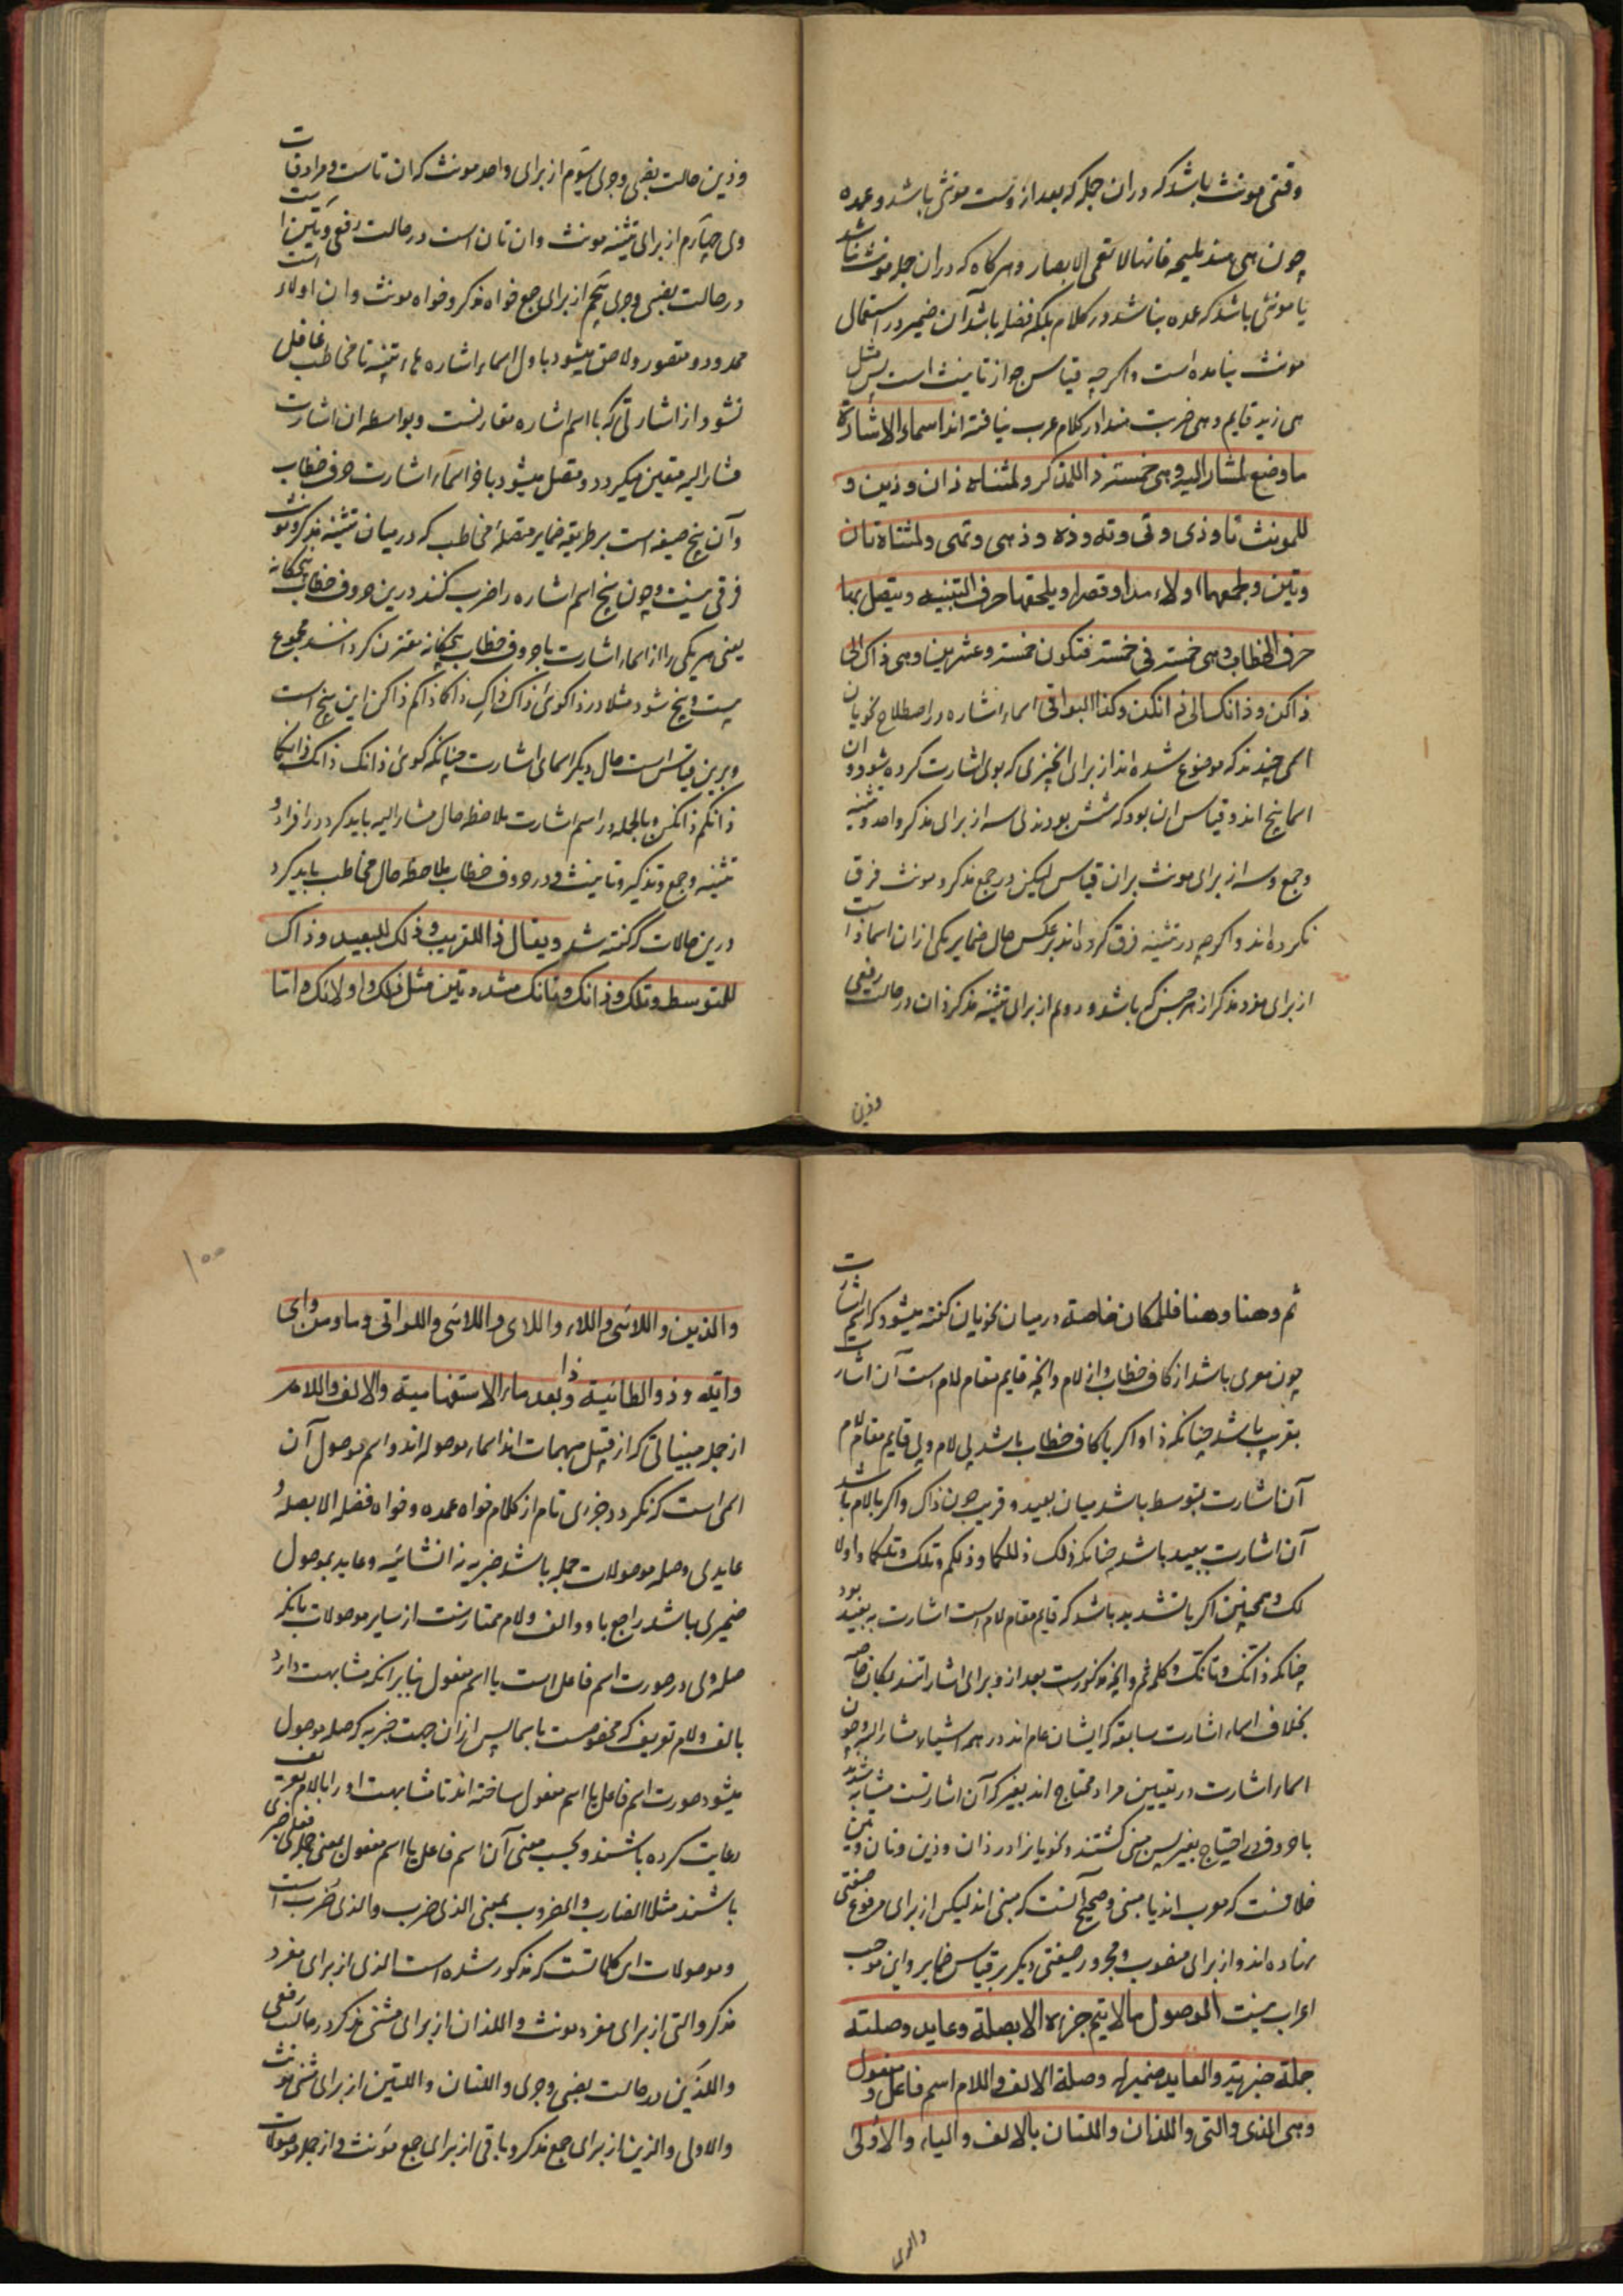 وقتی مونث باشد که دران جمله که بعد از وست مونثی باشد و عمده
چون هی هند ملیحه فانها لا تعمی الابصار و هرکاه که دران جمله مونث نباشد
یا مونثی باشد که عمده نباشد در کلام بلکه فضله باشد آن ضمیر در استعمال
مونث نیامده است و اکرچه قیاس جواز تانیث است پس مثل
هی زید قایم و هی ضربت هندا در کلام عرب نیافته اند اسماء الاشارة
ما وضع لمشار الیه وهی خمسة ذا للمذکر ولمثناه ذان وذین و
للمونث تا وذی وتی وته وذه وذهی وتهی ولمثناه تان
وتین ولجمعهما اولاء مدا وقصرا ویلحقها حرف التنبیه ویتصل بها
حرف الخطاب وهی خمسة فی خمسة فتکون خمسة وعشرین وهی ذاک الی
ذاکن وذانک الی ذانکن وکذا البواقی اسماء اشاره در اصطلاح نحویان
اسمی چندند که موضوع شده اند از برای انچیزی که بوی اشارت کرده شود و ان
اسما پنج اند و قیاس ان بود که شش بودندی سه از برای مذکر واحد و تثنیه
و جمع و سه از برای مونث بران قیاس لیکن در جمع مذکر و مونث فرق
نکرده اند و اکرچه در تثنیه فرق کرده اند برعکس حال ضمایر یکی از ان اسما ذا است
از برای مفرد مذکر از هر جنس که باشد و دوم از برای تثنیه مذکر ذان در حالت رفعی
وذین
وذین حالت نصبی و جری سیوم از برای واحد مونث که ان تاست و مرادفات
وی چهارم از برای تثنیه مونث و ان تان است در حالت رفعی و تین است
در حالت نصبی و جری پنجم از برای جمع خواه مذکر و خواه مونث و ان اولاء است
ممدود و مقصور و لاحق میشود باول اسماء اشاره هاء تنبیه تا مخاطب غافل
نشود از اشارتی که با اسم اشاره مقارنست و بواسطه ان اشارت
مشار الیه متعین میکردد و متصل میشود باخر اسماء اشارت حرف خطاب
و آن پنج صیغه است بر طریقه ضمایر متصله مخاطب که در میان تثنیه مذکر و مونث
فرقی نیست و چون پنج اسم اشاره را ضرب کنند درین حروف خطاب پنجکانه
یعنی هر یکی را از اسماء اشارت با حروف خطاب پنجکانه مقترن کردانند مجموع
بیست و پنج شود مثلا در ذا کوئی ذاک ذاکِ ذاکما ذاکم ذاکن این پنج است
و برین قیاس است حال دیکر اسمای اشارت چنانکه کوئی ذانک ذانک ذانکما
ذانکم ذانکن و بالجمله در اسم اشارت ملاحظه حال مشار الیه باید کرد در افراد و
تثنیه و جمع و تذکیر و تانیث و در حروف خطاب ملاحظه حال مخاطب باید کرد
درین حالات که کفته شد ویقال ذا للقریب وذلک للبعید وذاک
للمتوسط وتلک وذانک وتانک مشددتین مثل ذلک واولالک واما
ثم وهنا وهنا فللمکان خاصة در میان نحویان کفته میشود که اسم اشارت
چون معری باشد از کاف خطاب و از لام و انچه قایم مقام لام است آن اشارت
بقریب باشد چنانکه ذا و اکر با کاف خطاب باشد بی لام و بی قایم مقام لام
آن اشارت بمتوسط باشد میان بعید و قریب چون ذاک و اکر بالام باشد
آن اشارت ببعید باشد چنانکه ذلک ذلکما و ذلکم و تلک و تلکما و اولا
لک و همچنین اکر با تشدید باشد که قایم مقام لام است اشارت به بعید بود
چنانکه ذانک و تانک و کلمه ثم و انچه مذکورست بعد از و برای اشارتند بمکان خاصه
بخلاف اسماء اشارت سابقه که ایشان عام اند در همه اشیاء مشار الیه و چون
اسماء اشارت در تعیین مراد محتاج اند بغیر که آن اشارتست مشابه شدند
با حروف در احتیاج بغیر پس مبنی کشتند و نحویانرا در ذان و ذین و تان و تین
خلافست که معرب اند یا مبنی و صحیح آنست که مبنی اند لیکن از برای مرفوع صیغتی
نهاده اند و از برای منصوب و مجرور صیغتی دیکر بر قیاس ضمایر و این موجب
اعراب نیست الموصول مالا یتم جزء الا بصلة وعاید وصلته
جملة خبریة والعاید ضمیر له وصلة الالف واللام اسم فاعل ومفعول
وهی الذی والتی واللذان واللتان بالالف والیاء والاولی
والذین
۱۰۰
والذین واللائی واللاء واللای واللاتی واللواتی وما ومن وای
وایة وذو الطائیة وذا بعد ماء الاستفهامیة والالف واللام
از جمله مبنیاتی که از قبیل مبهمات اند اسماء موصوله اند و اسم موصول آن
اسمی است که نکردد جزوی تام از کلام خواه عمده و خواه فضله الا بصله و
عایدی و صله موصولات جمله باشد خبریه نه انشائیه و عاید بموصول
ضمیری باشد راجع باو و الف و لام ممتازست از سایر موصولات بانکه
صله وی در صورت اسم فاعل است یا اسم مفعول بنابر انکه مشابهت دارد
بالف و لام تعریف که مخصوصست باسما پس از ان جهت خبریه که صله موصول
میشود صورت اسم فاعل یا اسم مفعول ساخته اند تا مشابهت او را بالام تعریف
رعایت کرده باشند و بحسب معنی آن اسم فاعل یا اسم مفعول بمعنی جمله فعلی خبری
باشند مثلا الضارب و المضروب بمعنی الذی ضرب و الذی ضُرب است
و موصولات این کلماتست که مذکور شده است الذی از برای مفرد
مذکر و التی از برای مفرد مونث و اللذان از برای مثنی مذکر در حالت رفعی
و اللذین در حالت نصبی و جری و اللتان و اللتین از برای مثنی مونث
و الاولی و الذین از برای جمع مذکر و باقی از برای جمع مونث و از جمله موصولات